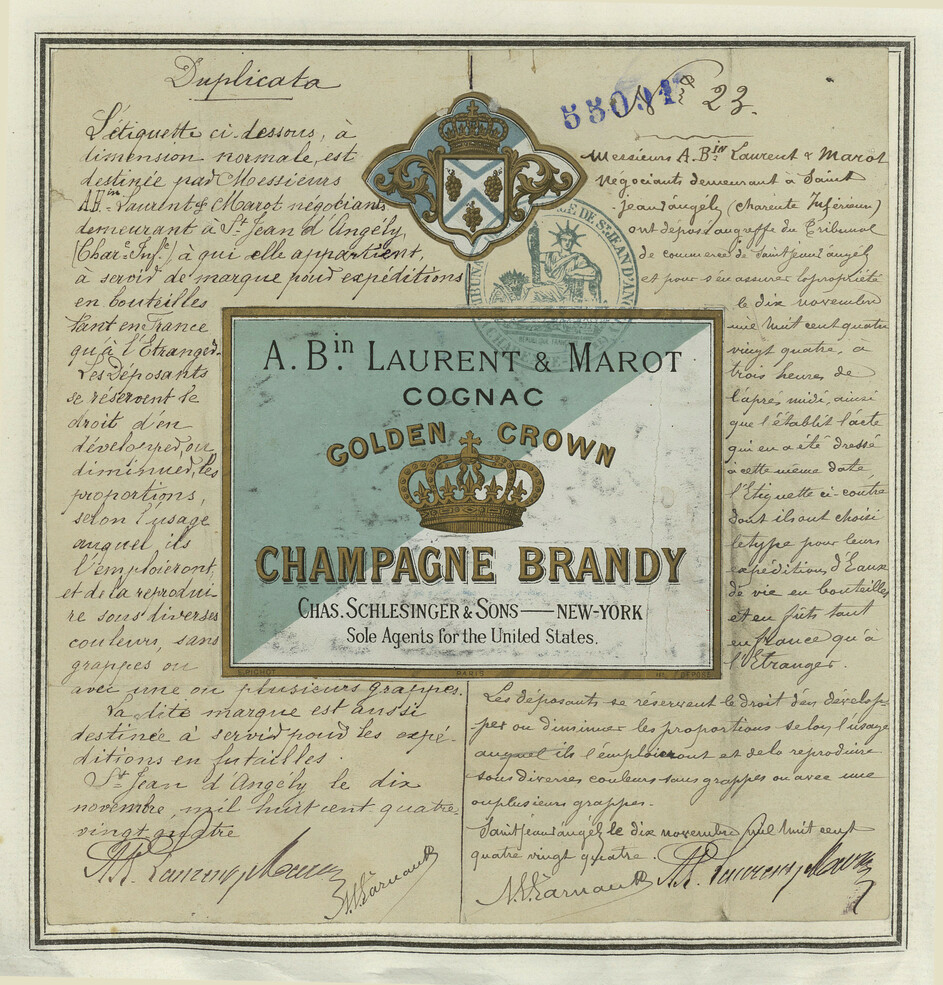 Duplicata
L'étiquette ci-dessous, à
dimension normale, est
destinée par Messieurs
AB^in Laurent & Marot négociants
demeurant à S^t Jean d'Angély,
(Char^e Inf^e) à qui elle appartient,
à servir de marque pour expéditions
en bouteilles
tant en France
qu'à l'Etranger.
Les Déposants
se réservent le
droit d'en
développer, ou
diminuer, les
proportions,
selon l'usage
auquel ils
l'emploieront
et de la reprodui-
re sous diverses
couleurs, sans
grappes ou
avec une ou plusieurs grappes.
La dite marque est aussi
destinée à servir pour les expé-
ditions en futailles.
S^t Jean d'Angély le dix
novembre, mil huit cent quatre-
vingt quatre
55091
N° 23.
Messieurs A. B^in Laurent & Marot
Négociants demeurant à Saint
Jean d'angély (Charente Inférieure)
ont déposé au greffe du Tribunal
de commerce de Saint Jean d'angély
et pour s'en assurer la propriété
le dix novembre
mil huit cent quatre
vingt quatre, à
trois heures de
l'après midi, ainsi
que l'établit l'acte
qui en a été dressé
à cette même date
l'Etiquette ci-contre
dont ils ont choisi
le type pour leurs
expéditions d'Eaux
de vie en bouteilles
et en fûts tant
en France qu'à
l'Etranger.
Les déposants se réservent le droit d'en dévelop-
per ou diminuer les proportions selon l'usage
auquel ils l'emploieront et de la reproduire
sous diverses couleurs sans grappes ou avec une
ou plusieurs grappes.
Saint Jean d'angély le dix novembre mil huit cent
quatre vingt quatre.
DE ST JEAN D'ANG
A. B^in. LAURENT & MAROT
COGNAC
GOLDEN CROWN
CHAMPAGNE BRANDY
CHAS. SCHLESINGER & SONS — NEW-YORK
Sole Agents for the United States.
PARIS
DÉPOSÉ